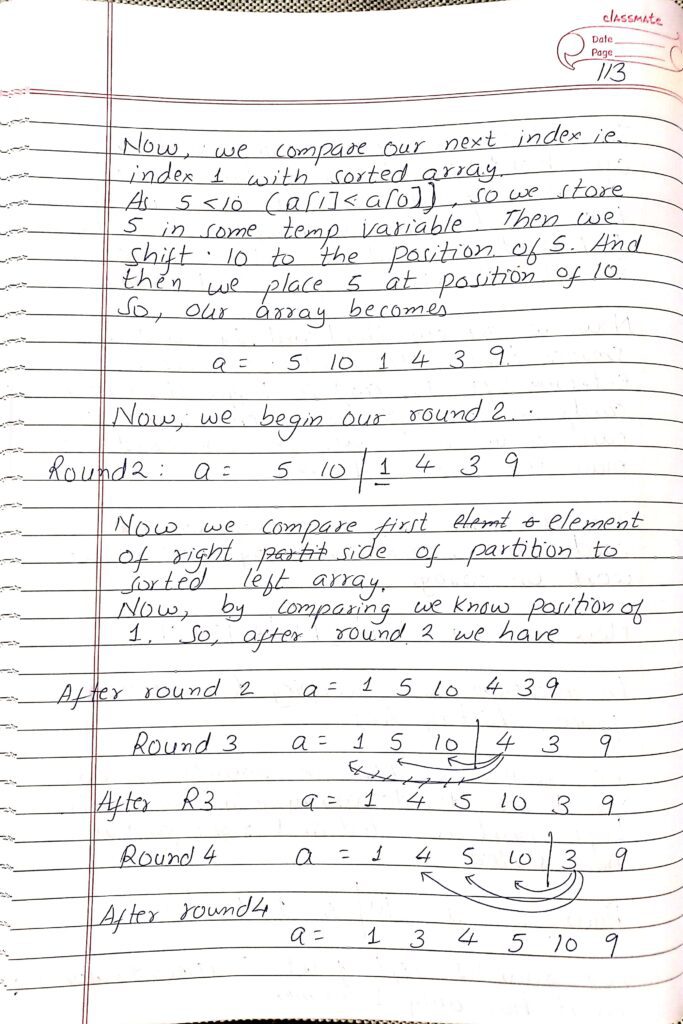 classmate
Date
Page
113
Now, we compare our next index ie.
index 1 with sorted array.
As 5 < 10 (a[1] < a[0]), so we store
5 in some temp variable. Then we
shift 10 to the position of 5. And
then we place 5 at position of 10.
So, our array becomes
a = 5 10 1 4 3 9
Now, we begin our round 2.
Round 2 : a = 5 10 | 1 4 3 9
Now we compare first elemt o element
of right partit side of partition to
sorted left array.
Now, by comparing we know position of
1. So, after round 2 we have
After round 2 a = 1 5 10 4 3 9
Round 3 a = 1 5 10 | 4 3 9
After R3 a = 1 4 5 10 3 9
Round 4 a = 1 4 5 10 | 3 9
After round 4
a = 1 3 4 5 10 9